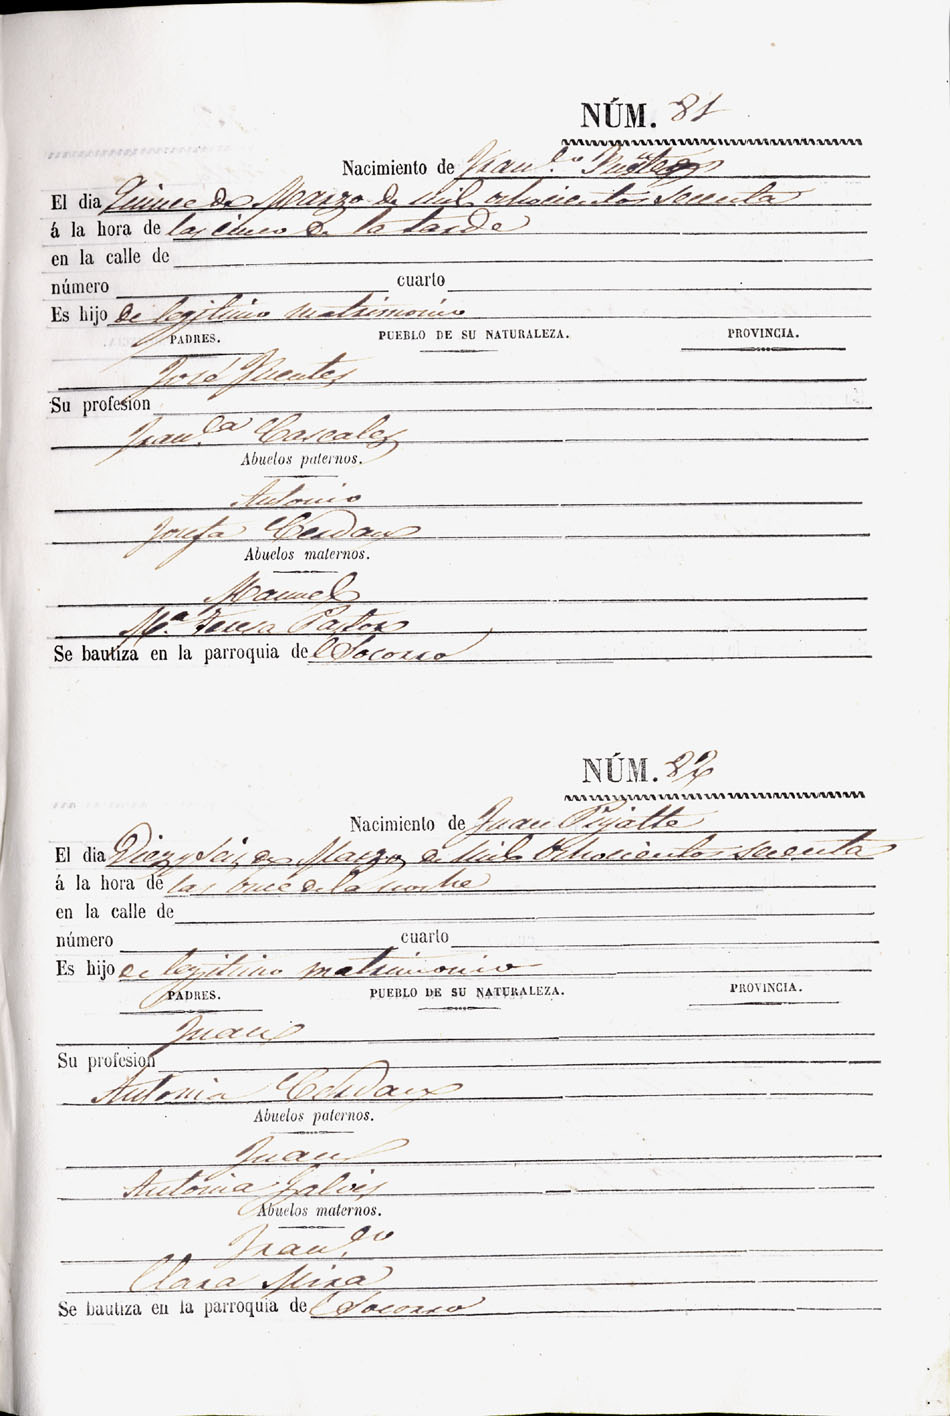 NÚM. 81
Nacimiento de Fran.co Fuentes
El dia Quince de Marzo de mil ochocientos sesenta
á la hora de las cinco de la tarde
en la calle de
número cuarto
Es hijo de legitimo matrimonio
PADRES. PUEBLO DE SU NATURALEZA. PROVINCIA.
José Fuentes
Su profesion
Fran.ca Cascales
Abuelos paternos.
Antonio
Josefa Cerdan
Abuelos maternos.
Manuel
M.a Teresa Pastor
Se bautiza en la parroquia del Socorro
NÚM. 82
Nacimiento de Juan
El dia Diez y seis de Marzo de mil ochocientos sesenta
á la hora de las once de la noche
en la calle de
número cuarto
Es hijo de legitimo matrimonio
PADRES. PUEBLO DE SU NATURALEZA. PROVINCIA.
Juan
Su profesion
Antonia Cerdan
Abuelos paternos.
Juan
Antonia Galvis
Abuelos maternos.
Fran.co
Clara Mira
Se bautiza en la parroquia del Socorro